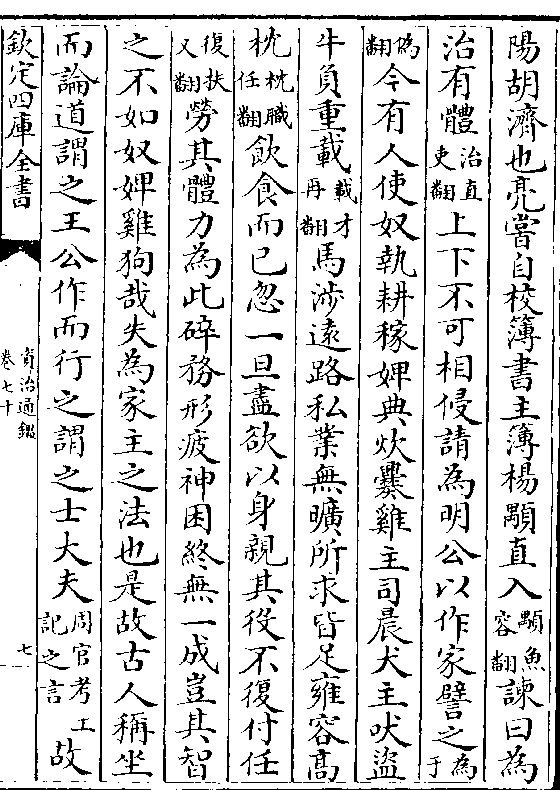 陽胡濟也亮嘗自校簿書主簿楊顒直入顒魚容翻諫曰為
治有體治直吏翻上下不可相侵請為明公以作家譬之為于
偽翻今有人使奴執耕稼婢典炊爨雞主司晨犬主吠盜
牛負重載載才再翻馬涉遠路私業無曠所求皆足雍容高
枕枕職任翻飲食而已忽一旦盡欲以身親其役不復付任
復扶又翻勞其體力為此碎務形疲神困終無一成豈其智
之不如奴婢雞狗哉失為家主之法也是故古人稱坐
而論道謂之王公作而行之謂之士大夫周官考工記之言故
欽定四庫全書
資治通鑑
卷七十
七